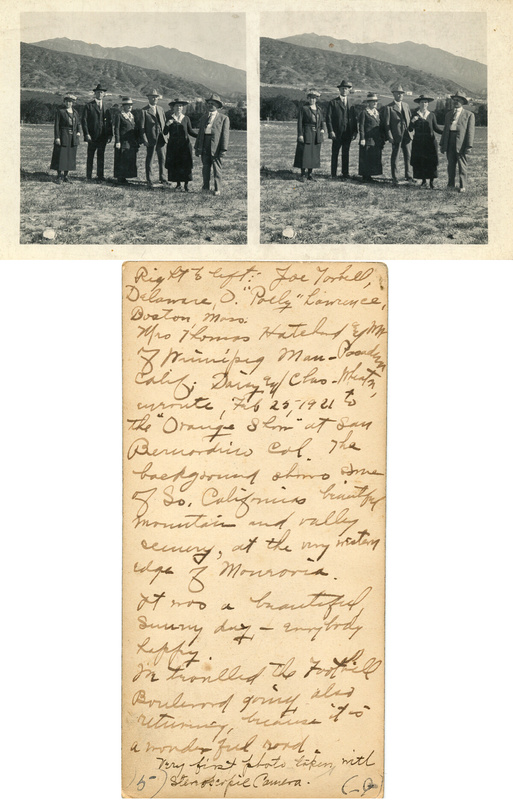 Right to left: Joe
Delaware, O. "Polly" Lawrence,
Boston, Mass.
Mrs Thomas Hatched
of Winnipeg Man -
Calif. Daisy & Chas -
enroute, Feb 25, 1921 to
the "Orange Show" at San
Bernardino Cal. The
background shows some
of So. Californias beautiful
mountain and valley
scenery, at the very western
edge of Monrovia.
It was a beautiful,
sunny day - everybody
happy.
We travelled the Foothill
Boulevard going also
returning, because it is
a wonderful road.
Very first photo taken, with
Stereoscopic Camera.